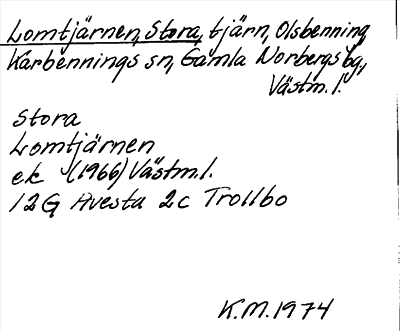 Lomtjärnen, Stora, tjärn, Olsbenning
Karbennings sn, Gamla Norbergs bg.,
Västm. l.
Stora
Lomtjärnen
ek (1966) Västm. l.
12G Avesta 2c Trollbo
K.M. 1974